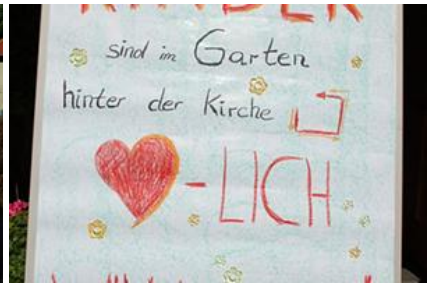 KINDER
sind im Garten
hinter der Kirche
-LICH